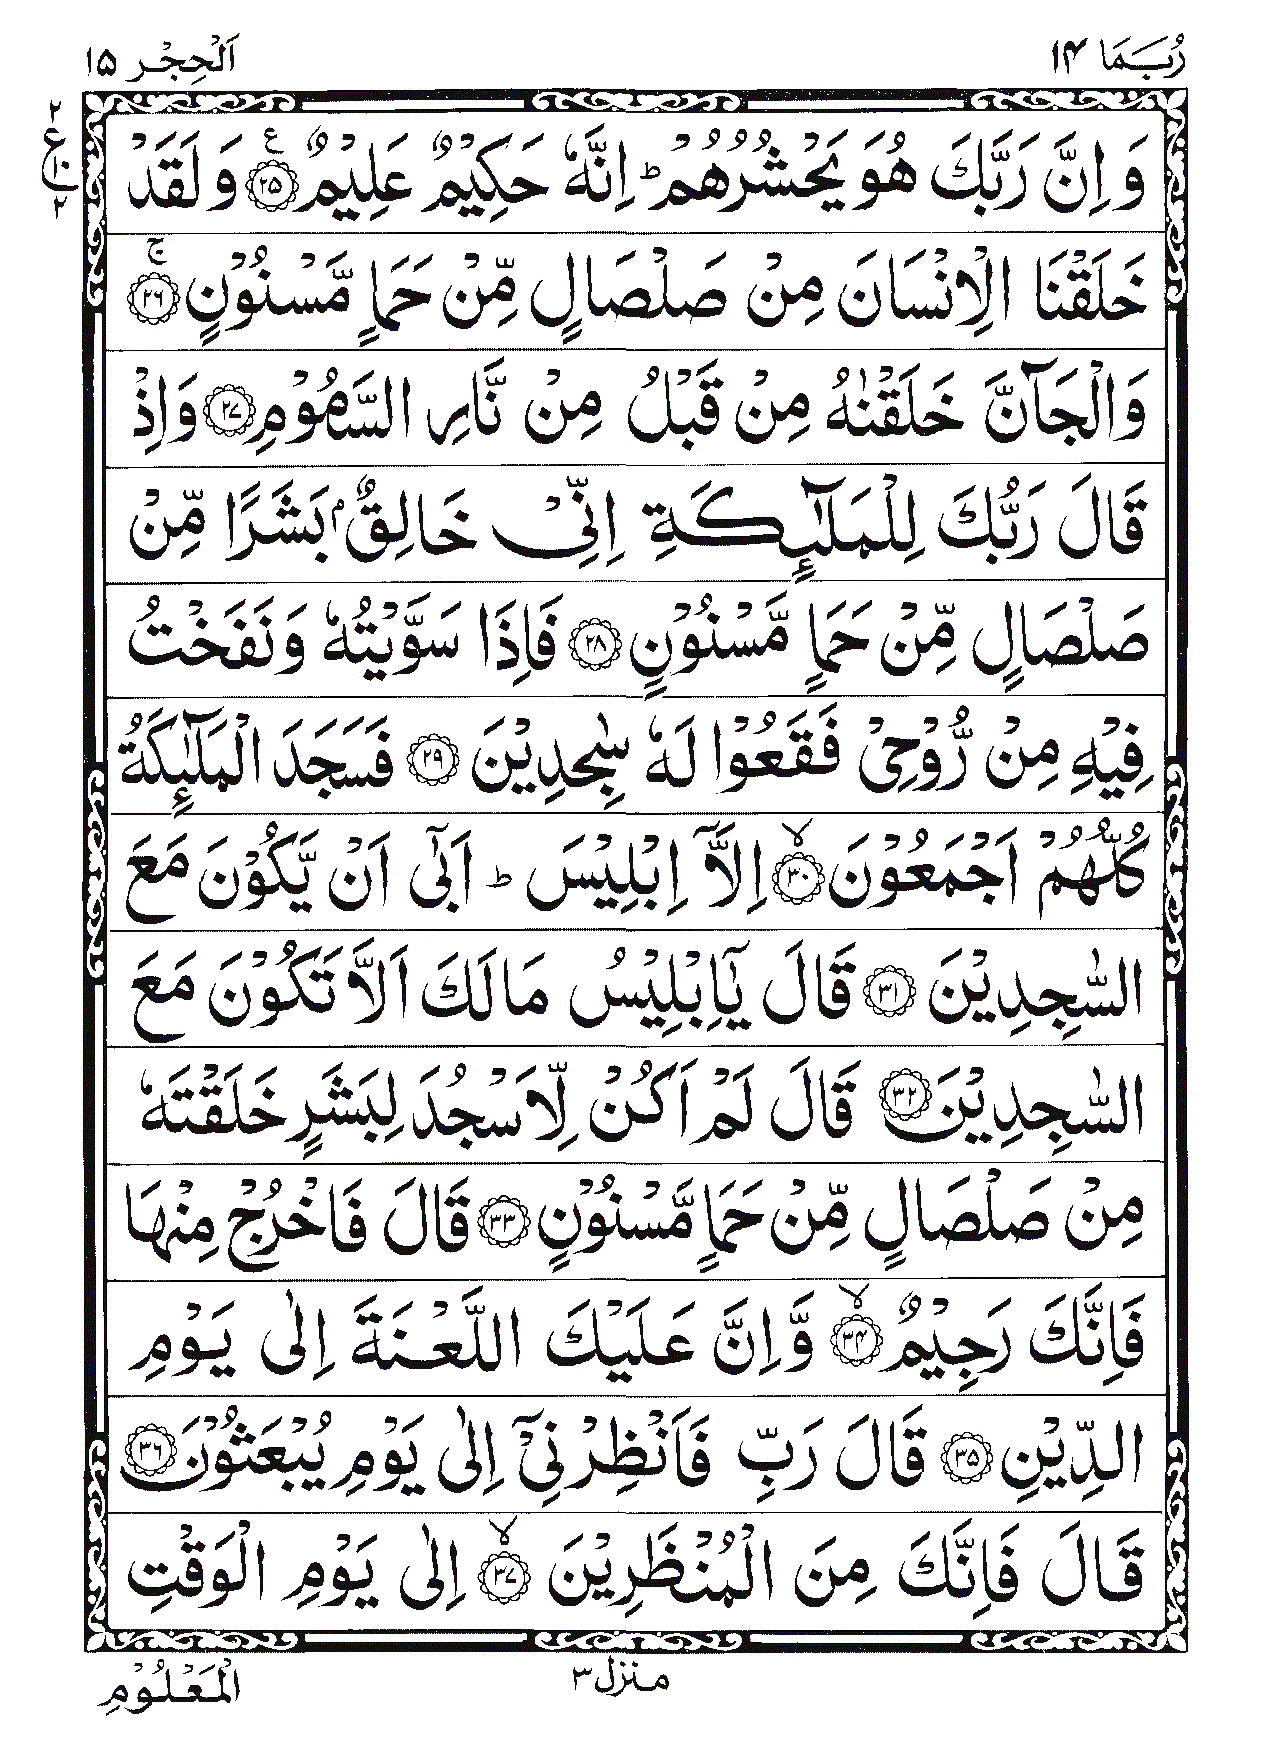 رُبَمَا ١٤
اَلْحِجْر ١٥
٢
ع
١٠
٢
وَ اِنَّ رَبَّكَ هُوَ يَحْشُرُهُمْ ؕ اِنَّهٗ حَكِيْمٌ عَلِيْمٌ ﴿٢٥﴾ ع وَ لَقَدْ
خَلَقْنَا الْاِنْسَانَ مِنْ صَلْصَالٍ مِّنْ حَمَاٍ مَّسْنُوْنٍ ﴿٢٦﴾ ۚ
وَالْجَآنَّ خَلَقْنٰهُ مِنْ قَبْلُ مِنْ نَّارِ السَّمُوْمِ ﴿٢٧﴾ وَاِذْ
قَالَ رَبُّكَ لِلْمَلٰٓئِكَةِ اِنِّىْ خَالِقٌۢ بَشَرًا مِّنْ
صَلْصَالٍ مِّنْ حَمَاٍ مَّسْنُوْنٍ ﴿٢٨﴾ فَاِذَا سَوَّيْتُهٗ وَنَفَخْتُ
فِيْهِ مِنْ رُّوْحِىْ فَقَعُوْا لَهٗ سٰجِدِيْنَ ﴿٢٩﴾ فَسَجَدَ الْمَلٰٓئِكَةُ
كُلُّهُمْ اَجْمَعُوْنَ ﴿٣٠﴾ ۙ اِلَّاۤ اِبْلِيْسَ ؕ اَبٰٓى اَنْ يَّكُوْنَ مَعَ
السّٰجِدِيْنَ ﴿٣١﴾ قَالَ يٰۤاِبْلِيْسُ مَا لَكَ اَلَّا تَكُوْنَ مَعَ
السّٰجِدِيْنَ ﴿٣٢﴾ قَالَ لَمْ اَكُنْ لِّاَسْجُدَ لِبَشَرٍ خَلَقْتَهٗ
مِنْ صَلْصَالٍ مِّنْ حَمَاٍ مَّسْنُوْنٍ ﴿٣٣﴾ قَالَ فَاخْرُجْ مِنْهَا
فَاِنَّكَ رَجِيْمٌ ﴿٣٤﴾ ۙ وَّ اِنَّ عَلَيْكَ اللَّعْنَةَ اِلٰى يَوْمِ
الدِّيْنِ ﴿٣٥﴾ قَالَ رَبِّ فَاَنْظِرْنِىْۤ اِلٰى يَوْمِ يُبْعَثُوْنَ ﴿٣٦﴾
قَالَ فَاِنَّكَ مِنَ الْمُنْظَرِيْنَ ﴿٣٧﴾ ۙ اِلٰى يَوْمِ الْوَقْتِ
منزل ٣
الْمَعْلُوْمِ